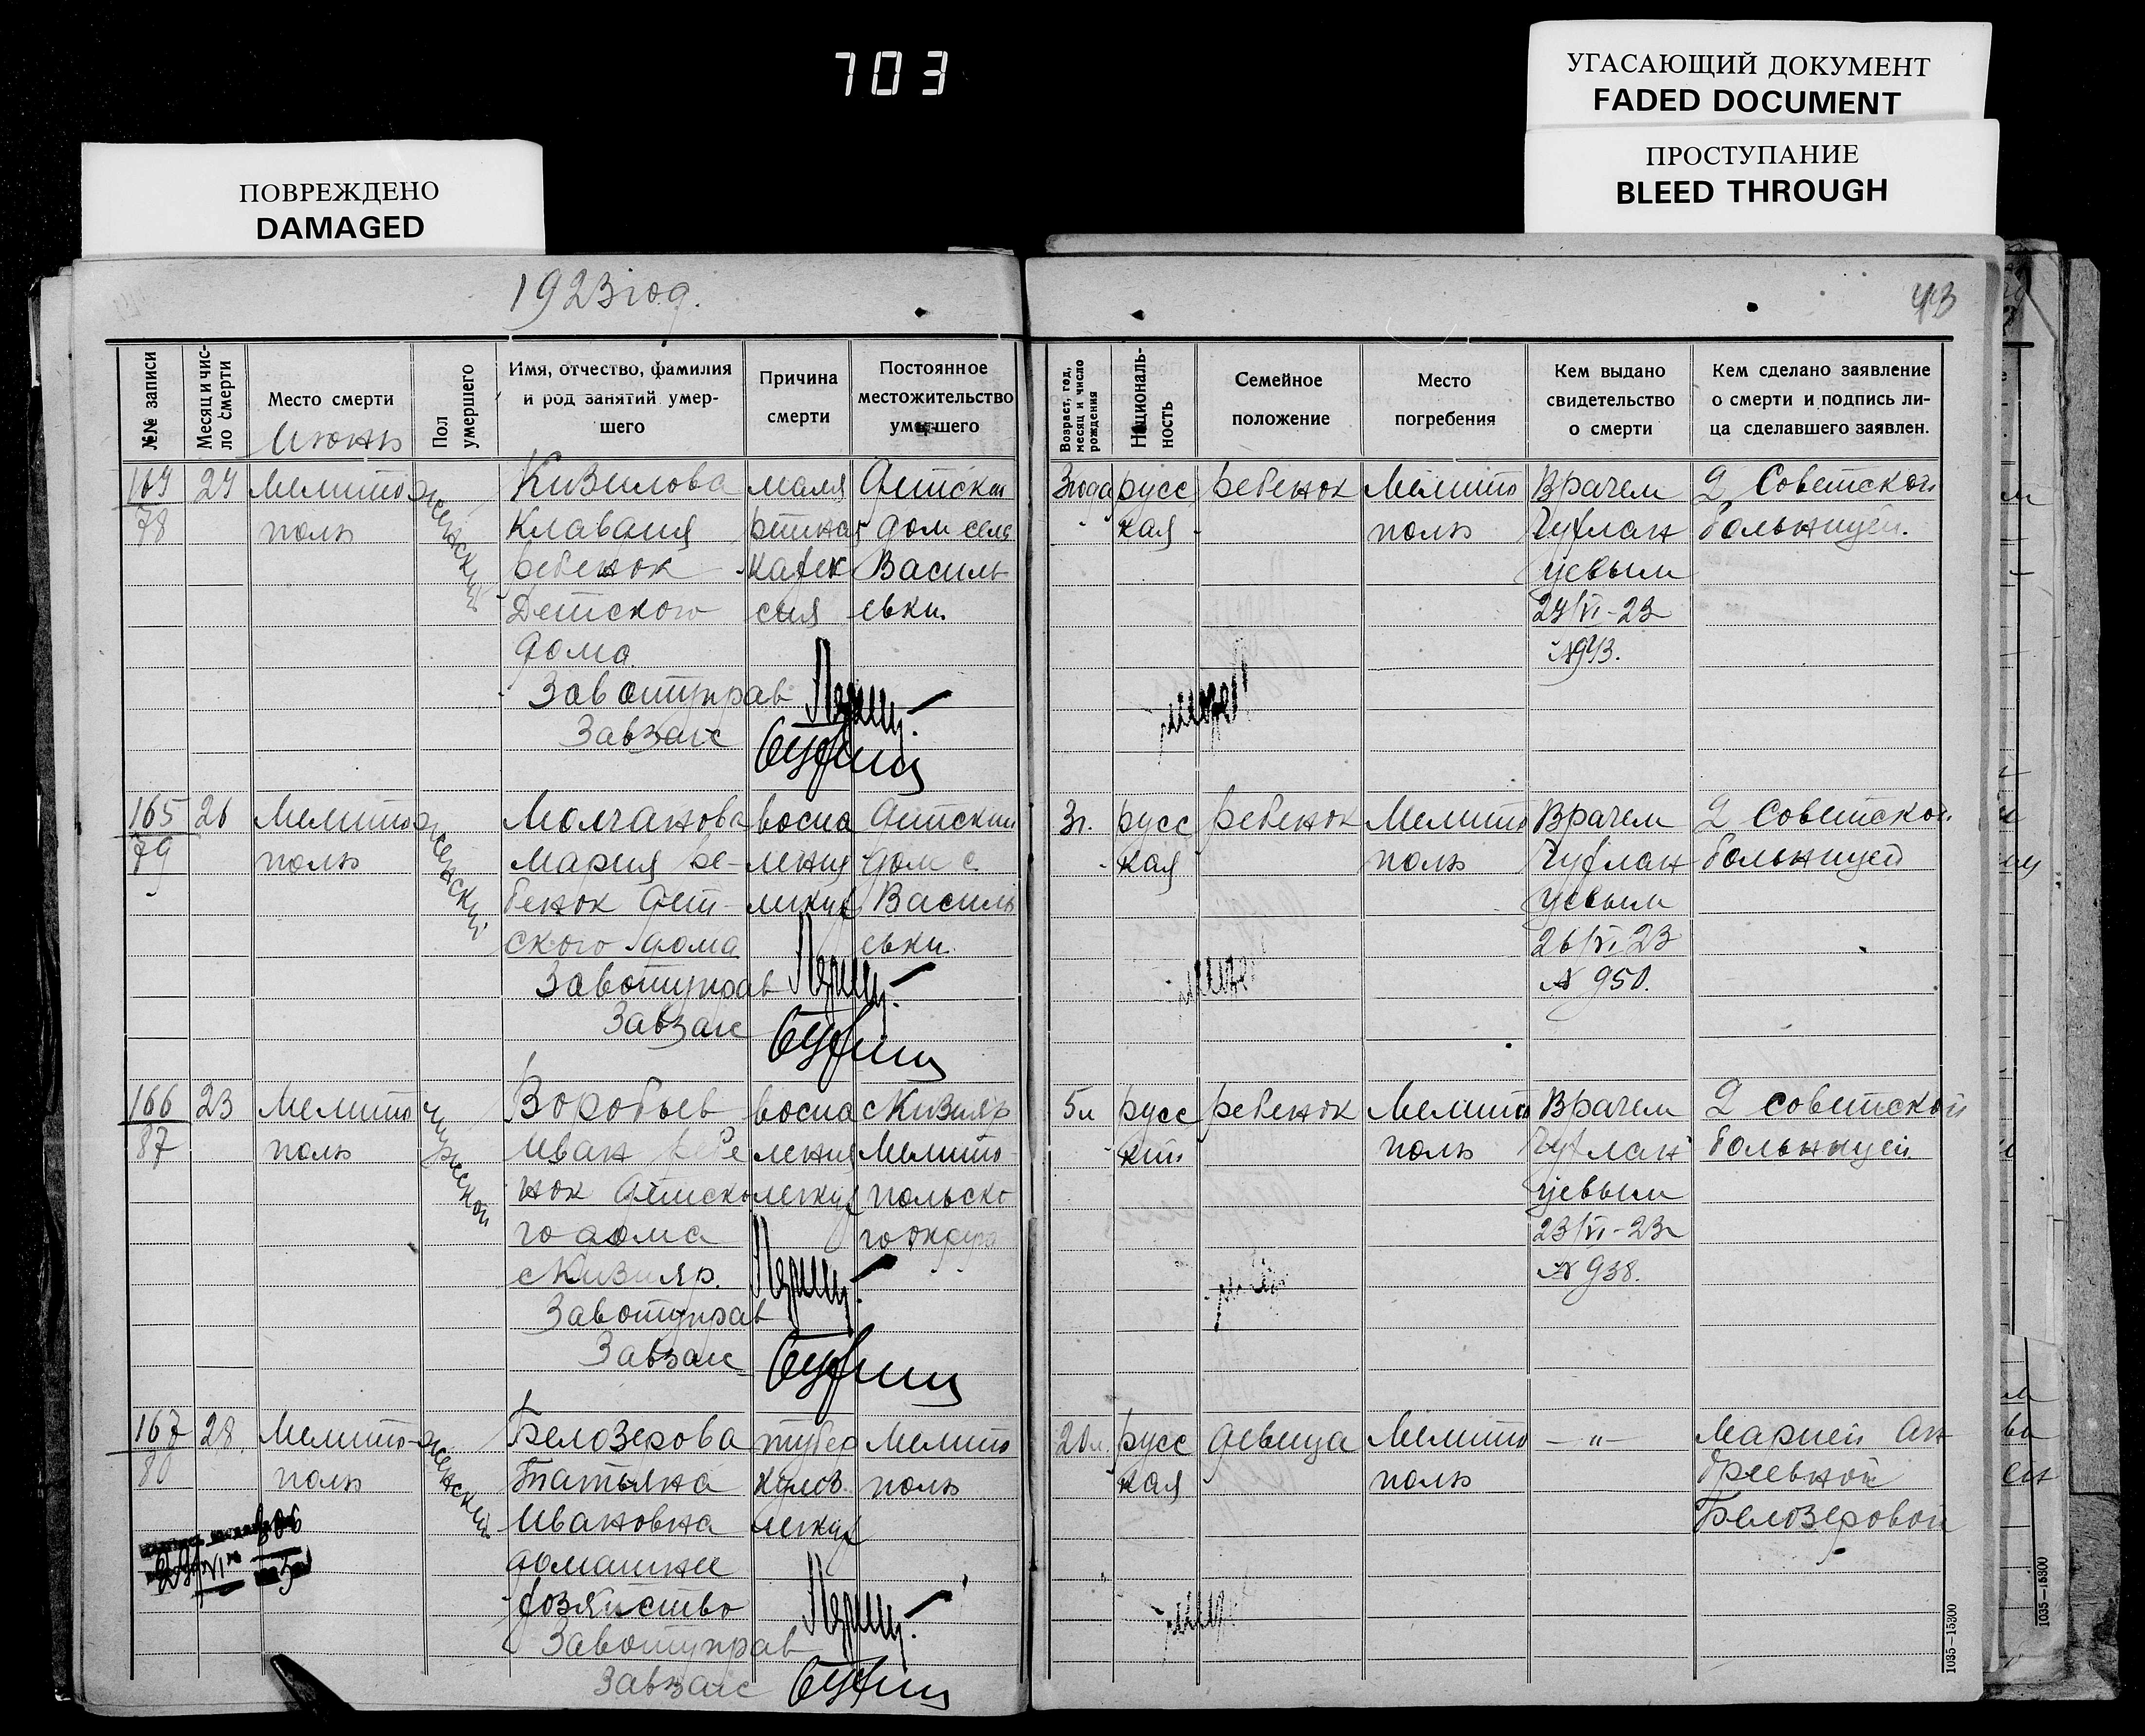 703
УГАСАЮЩИЙ ДОКУМЕНТ
FADED DOCUMENT
ПРОСТУПАНИЕ
BLEED THROUGH
ПОВРЕЖДЕНО
DAMAGED
1923 год.
43
№№ записи
Месяц и чис-
ло смерти
Место смерти
Июнь
Пол
умершего
Имя, отчество, фамилия
и род занятий умер-
шего
Причина
смерти
Постоянное
местожительство
умершего
Возраст, год,
месяц и число
рождения
Националь-
ность
Семейное
положение
Место
погребения
Кем выдано
свидетельство
о смерти
Кем сделано заявление
о смерти и подпись ли-
ца сделавшего заявлен.
164
78
24
Мелито
поль
женский
Кизилова
Клавдия
ребенок
Детского
дома
маля
рийная
кахек
сия
Детский
дом села
Василь
евки.
3 года
русс
кая
ребенок
Мелито
поль
Врачем
Гуфлан
цевым
24/VI-23
№ 943.
2 Советской
больницей.
Завотуправ
Завзагс
165
79
26
Мелито
поль
женский
Молчанова
Мария ре-
бенок Дет-
ского дома
воспа
ления
легких
Детский
дом с.
Василь
евки.
3 г.
русс
кая
ребенок
Мелито
поль
Врачем
Гуфлан
цевым
26/VI 23
№ 950.
2 Советской
больницей
Завотуправ
Завзагс
166
87
23
Мелито
поль
мужской
Воробьев
Иван ребе
нок Детско
го дома
с Кизияр.
воспа
ления
легких
с Кизияр
Мелито-
польско
го округа
5 л
русс
кий
ребенок
Мелито
поль
Врачем
Гуфлан
цевым
23/VI-23г
№ 938.
2 советской
больницей
Завотуправ
Завзагс
167
80
28
Мелито-
поль
женский
Белозерова
Татьяна
Ивановна
домашнее
хозяйство
тубер
кулоз
легких
Мелито
поль
20 л.
русс
кая
девица
Мелито
поль
— " —
Марией Ан
дреевной
Белозеровой
Завотуправ
Завзагс
1035—15300
1035—15300